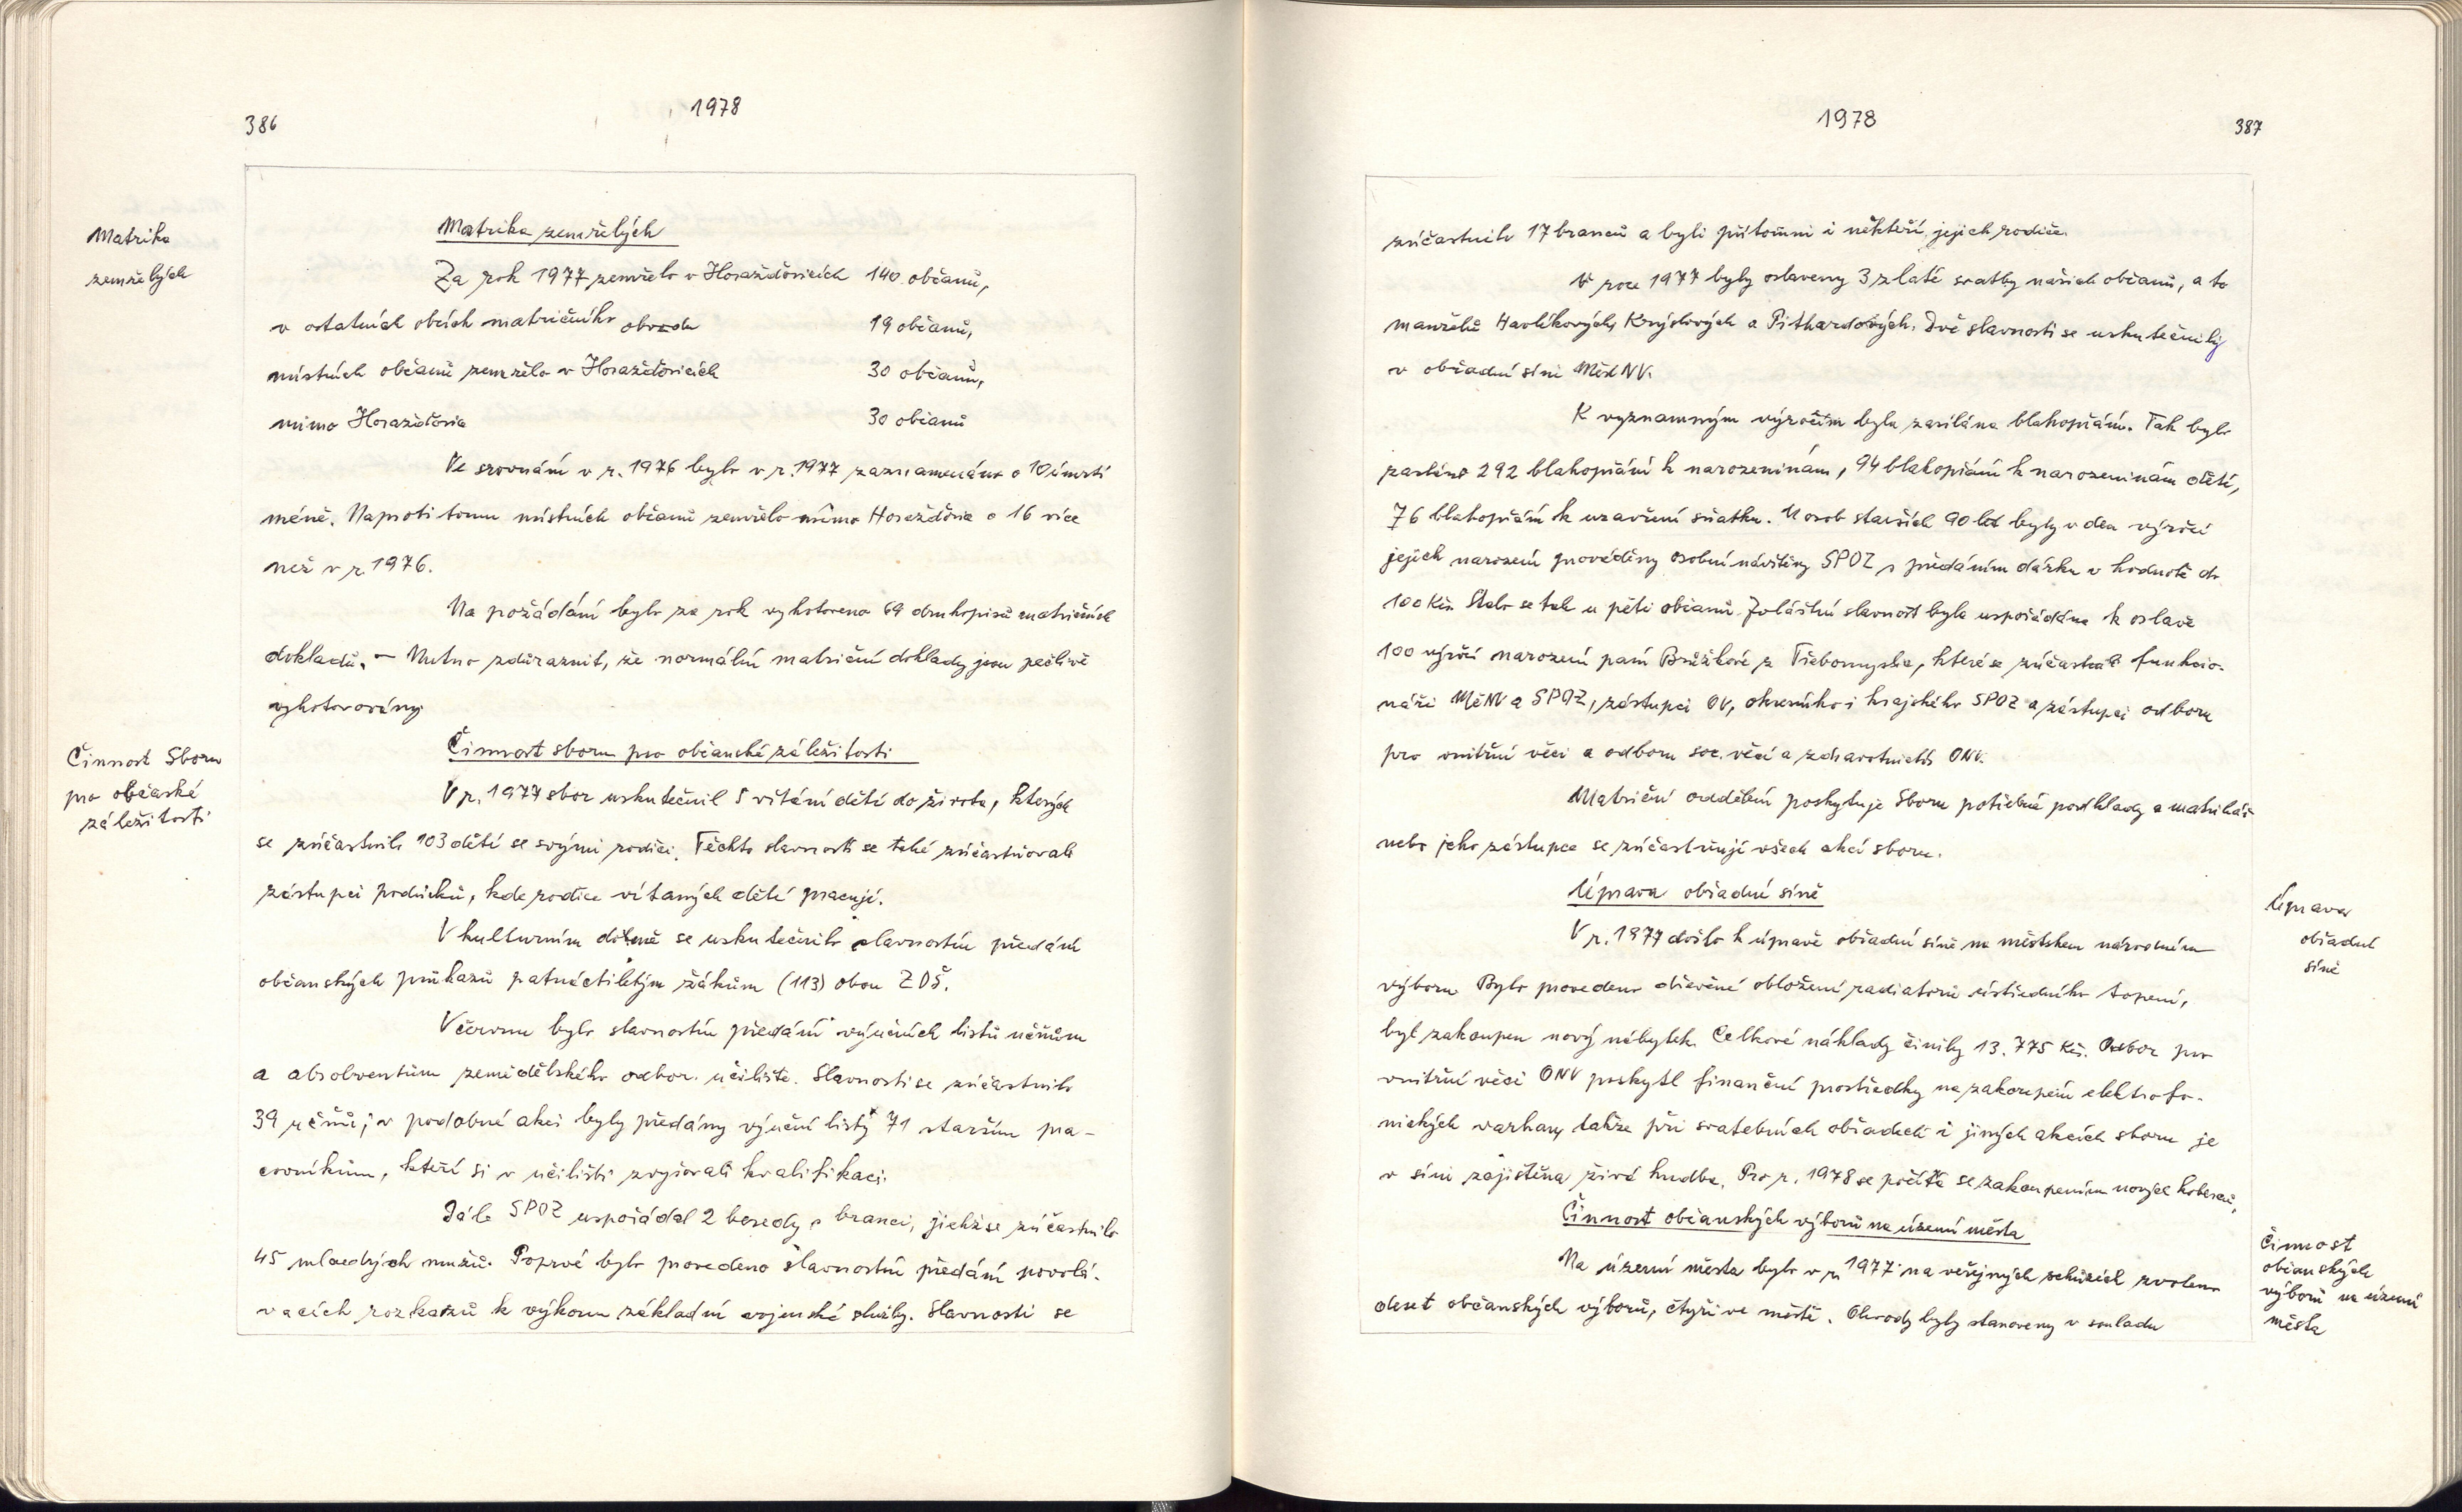 386
1978
Matrika
zemřelých
Matrika zemřelých
Za rok 1977 zemřelo v Horažďovicích 140 občanů,
v ostatních obcích matričního obvodu 19 občanů,
místních občanů zemřelo v Horažďovicích 30 občanů,
mimo Horažďovice 30 občanů
Ve srovnání v r. 1976 bylo v r. 1977 zaznamenáno o 10 úmrtí
méně. Naproti tomu místních občanů zemřelo mimo Horažďovice o 16 více
než v r. 1976.
Na požádání bylo za rok vyhotoveno 69 druhopisů matričních
dokladů. – Nutno zdůraznit, že normální matriční doklady jsou pečlivě
vyhotovovány.
Činnost Sboru
pro občanské
záležitosti
Činnost sboru pro občanské záležitosti
V r. 1977 sbor uskutečnil 5 vítání dětí do života, kterých
se zúčastnilo 103 dětí se svými rodiči. Těchto slavností se také zúčastňovali
zástupci podniků, kde rodiče vítaných dětí pracují.
V kulturním domě se uskutečnilo slavnostní předání
občanských průkazů patnáctiletým žákům (113) obou ZDŠ.
V červnu bylo slavnostní předání výučních listů učňům
a absolventům zemědělského odbor. učiliště. Slavnosti se zúčastnilo
39 učňů; v podobné akci byly předány výuční listy 71 starším pra-
covníkům, kteří si v učilišti zvyšovali kvalifikaci.
Dále SPOZ uspořádal 2 besedy s branci, jichž se zúčastnilo
45 mladých mužů. Poprvé bylo provedeno slavnostní předání povolá-
vacích rozkazů k výkonu základní vojenské služby. Slavnosti se
1978
387
zúčastnilo 17 branců a byli přítomni i někteří jejich rodiče.
V roce 1977 byly oslaveny 3 zlaté svatby našich občanů, a to
manželů Havlíkových, Krýslových a Pithardových. Dvě slavnosti se uskutečnily
v obřadní síni MěstNV.
K významným výročím byla zasílána blahopřání. Tak bylo
zasláno 292 blahopřání k narozeninám, 94 blahopřání k narozeninám dětí,
76 blahopřání k uzavření sňatku. U osob starších 90 let byly v den výročí
jejich narození prováděny osobní návštěvy SPOZ s předáním dárku v hodnotě do
100 Kčs. Stalo se tak u pěti občanů. Zvláštní slavnost byla uspořádána k oslavě
100 výročí narození paní Brůžkové z Třebomyslic, které se zúčastnili funkcio-
náři MěNV a SPOZ, zástupci OV, okresního i krajského SPOZ a zástupci odboru
pro vnitřní věci a odboru soc. věcí a zdravotnictví ONV.
Matriční oddělení poskytuje Sboru potřebné podklady a matrikář
nebo jeho zástupce se zúčastňují všech akcí sboru.
Úprava
obřadní
síně
Úprava obřadní síně
V r. 1977 došlo k úpravě obřadní síně na městském národním
výboru. Bylo provedeno dřevěné obložení radiátorů ústředního topení,
byl zakoupen nový nábytek. Celkové náklady činily 13.775 Kčs. Odbor pro
vnitřní věci ONV poskytl finanční prostředky na zakoupení elektrofo-
nických varhan, takže při svatebních obřadech i jiných akcích sboru je
v síni zajištěna živá hudba. Pro r. 1978 se počítá se zakoupením nových koberců.
Činnost
občanských
výborů na území
města
Činnost občanských výborů na území města
Na území města bylo v r. 1977 na veřejných schůzích zvoleno
deset občanských výborů, čtyři ve městě. Obvody byly stanoveny v souladu